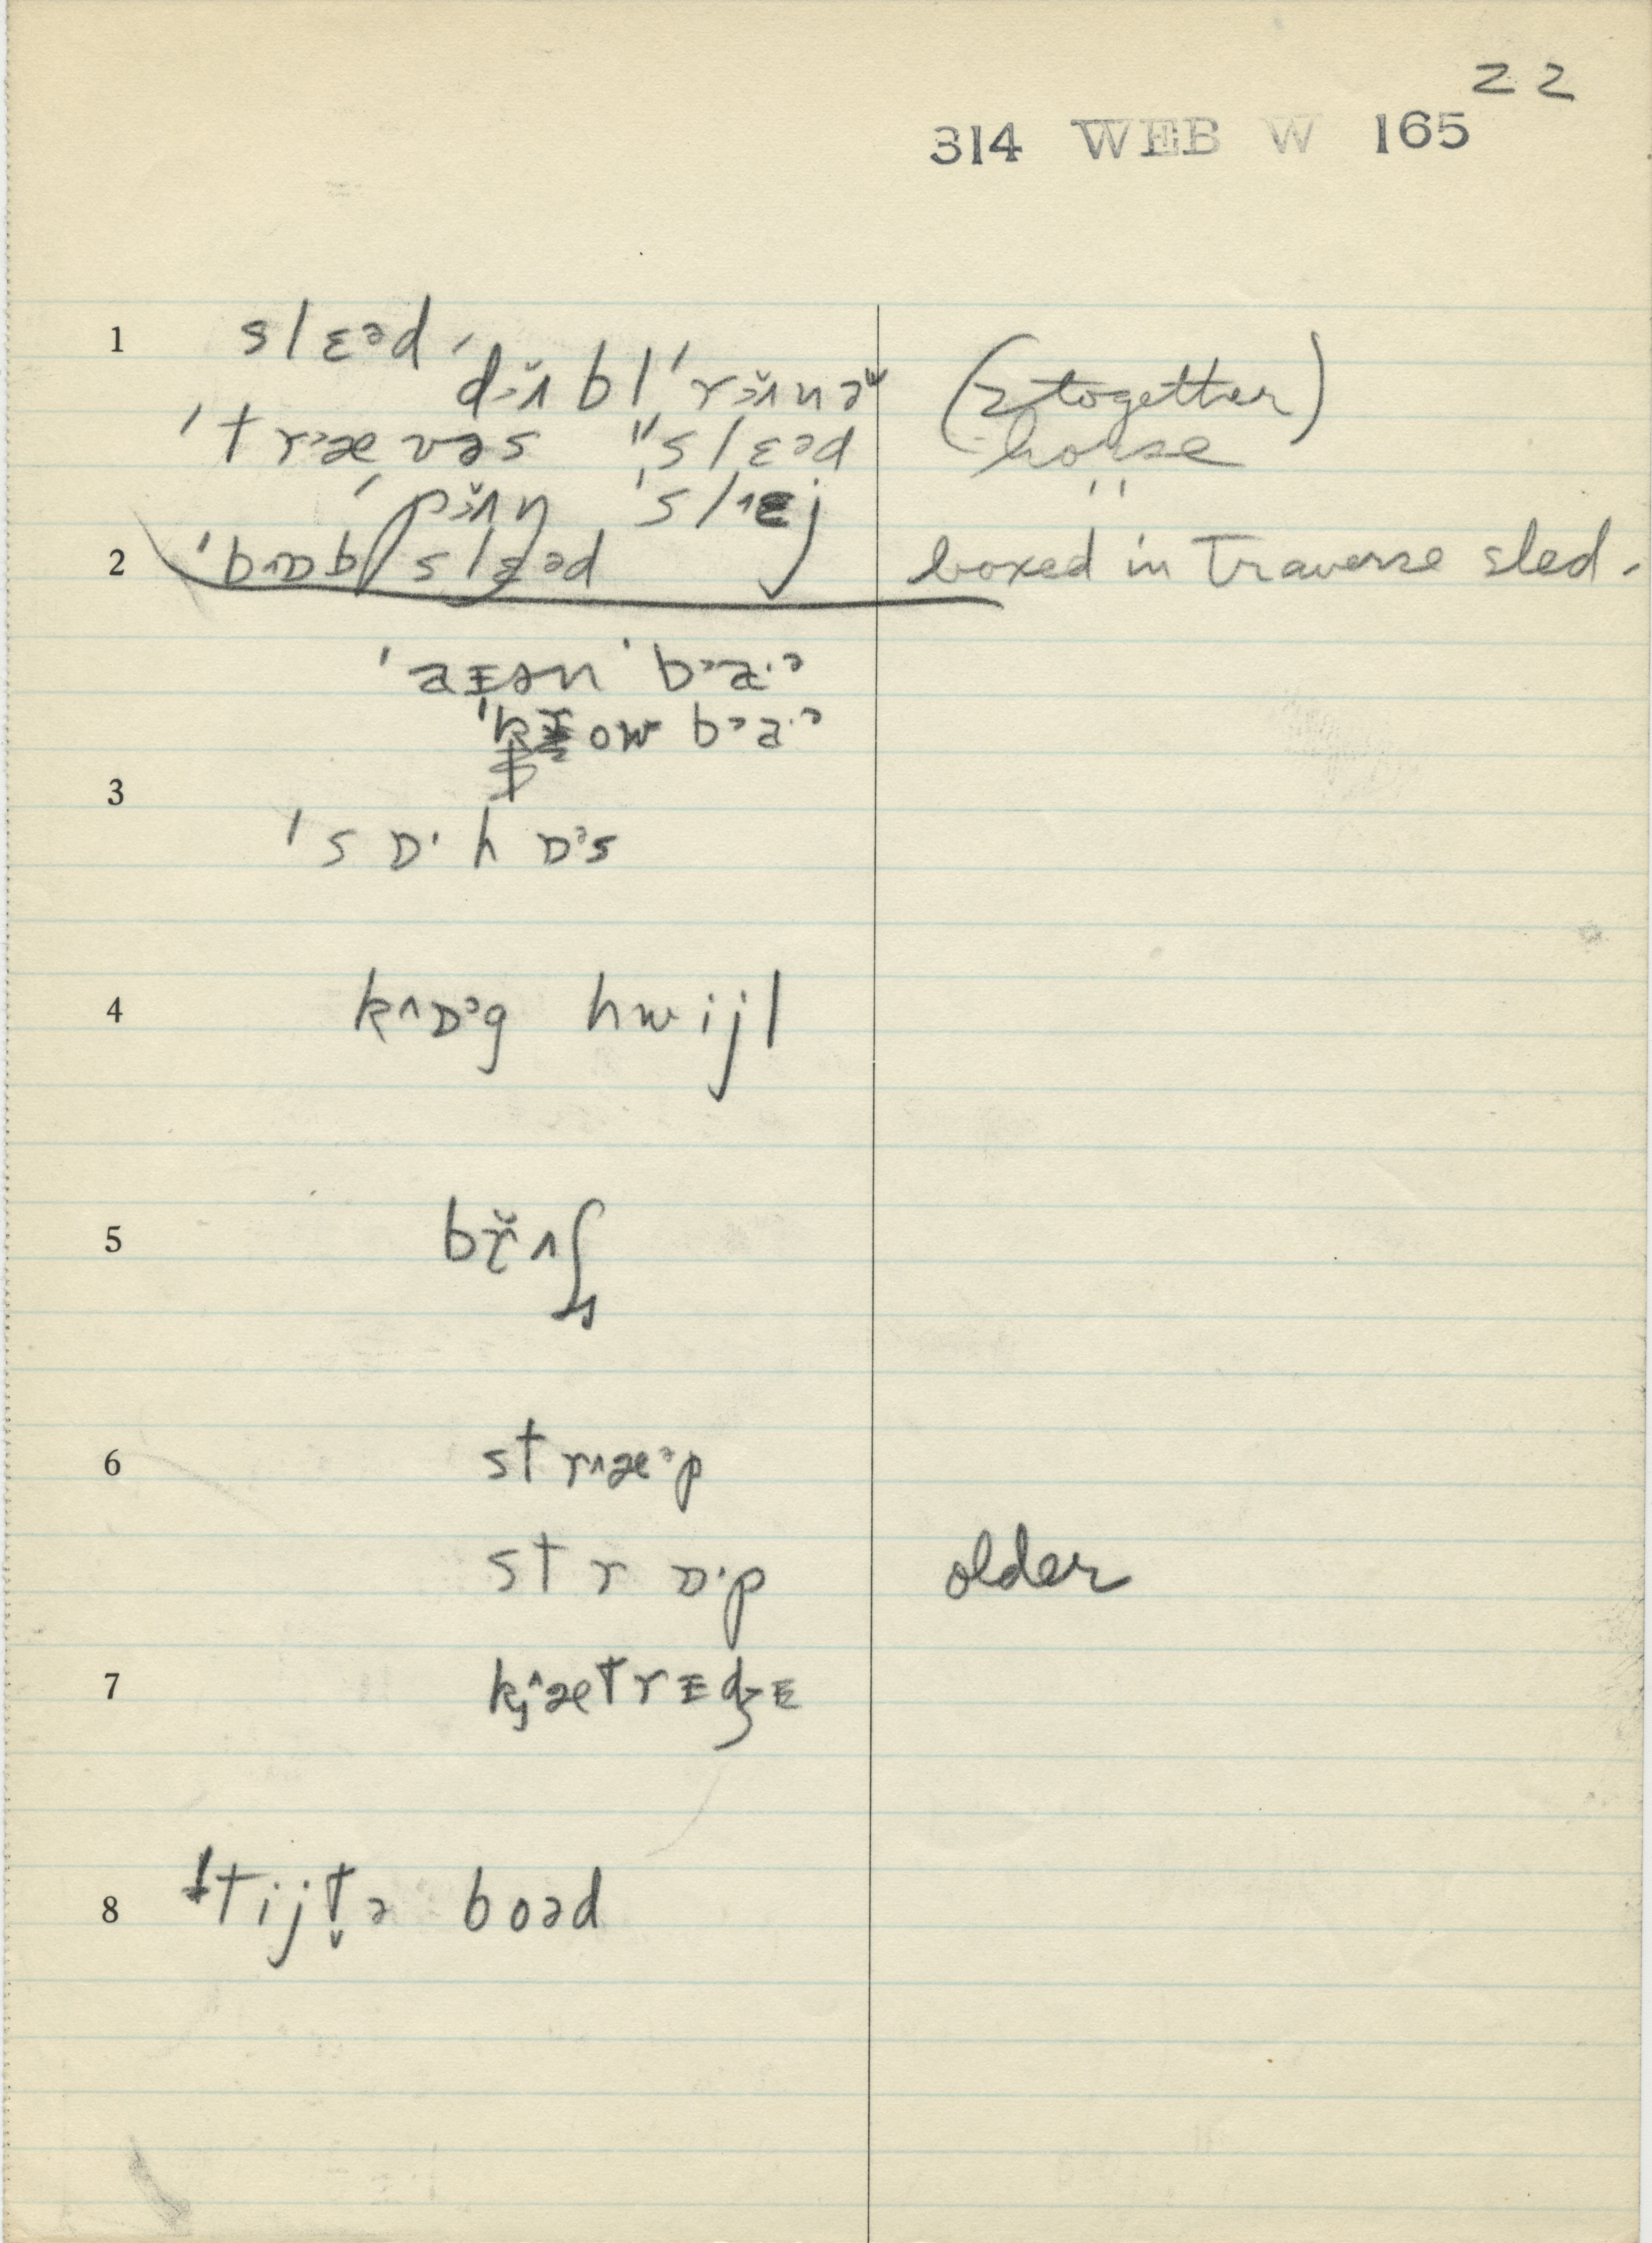 22
314 WEB W 165
1 slɛᵊd
dɜ̆ʌbl ˈrɜ̆ʌnəʷ (2 together)
ˈtrᵊævəs ˈˈslɛᵊd horse
ˈpɜ̆ʌŋ ˈslᴇj "
2 ˈbᴧɒbl slɛᵊd boxed in Traverse sled.
ˈaɪən ˈbᵊa·ᵊ
ow bᵊa·ᵊ
3
ˈsɒ· hɒᵊs
4 kᴧɒᵊg hwijl
5 brɪ̆ʌʃ
6 strᴧæᵊp
strɒ·p older
7 kj^ætrɪdʒɪ
8 ˈtijt̬ə boəd